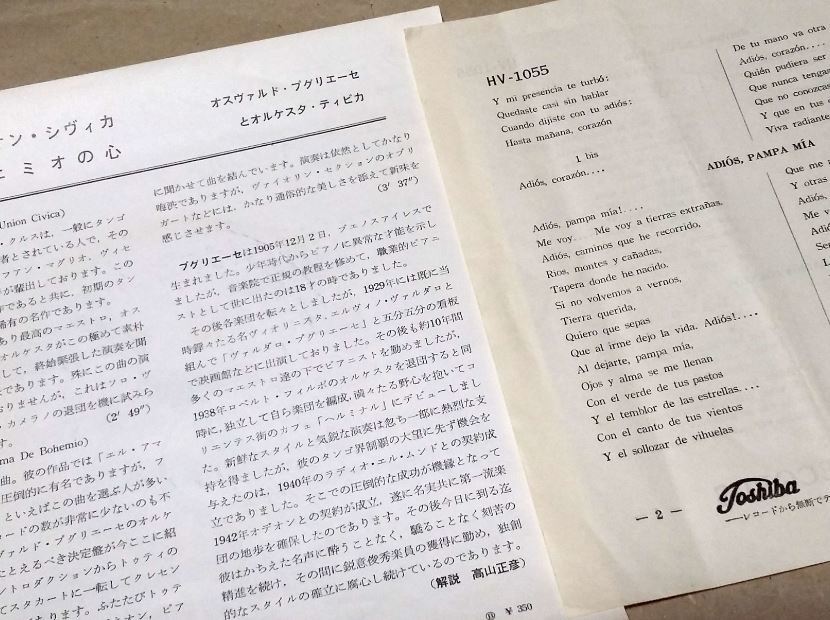 ナン・シヴィカ
エミオの心
オスヴァルド・プグリエーセ
とオルケスタ・ティピカ
Union Civica)
・クルスは，一般にタンゴ
者とされている人で，その
ファン・マグリオ，ヴィセ
が輩出しております。この
作であると共に，初期のタン
稀有の名作であります。
あり最高のマエストロ，オス
オルケスタがこの極めて素朴
して，終始緊張した演奏を聞
であります。殊にこの曲の演
おりませんが，これはソロ・ヴ
・カメラノの退団を機に試みら
す。
(2′ 49″)
ma De Bohemio)
曲。彼の作品では「エル・アマ
圧倒的に有名でありますが，フ
といえばこの曲を選ぶ人が多い
コードの数が非常に少ないのも不
ヴァルド・プグリエーセのオルケ
たとえるべき決定盤が今ここに紹
ントロダクションからトゥティの
てスタカートに一転してクレセン
があります。ふたたびトゥテ
に聞かせて曲を結んでいます。演奏は依然としてかなり
晦渋でありますが，ヴァイオリン・セクションのオブリ
ガートなどには，かなり通俗的な美しさを添えて新味を
感じさせます。
(3′ 37″)
プグリエーセは1905年12月2日，ブェノスアイレスで
生まれました。少年時代からピアノに異常な才能を示し
ましたが，音楽院で正規の教程を修めて，職業的ピアニ
ストとして世に出たのは18才の時でありました。
その後各楽団を転々としましたが，1929年には既に当
時錚々たる名ヴィオリニスタ，エルヴィノ・ヴァルダロと
組んで「ヴァルダロ・プグリエーセ」と五分五分の看板
で映画館などに出演しておりました。その後も約10年間
多くのマエストロ達の下でピアニストを勤めましたが，
1938年ロベルト・フィルポのオルケスタを退団すると同
時に，独立して自ら楽団を編成，満々たる野心を抱いてコ
リエンテス街のカフェ「ヘルミナル」にデビューしまし
た。新鮮なスタイルと気鋭な演奏は忽ち一部に熱烈な支
持を得ましたが，彼のタンゴ界制覇の大望に先ず機会を
与えたのは，1940年のラディオ・エル・ムンドとの契約成
立でありました。そこでの圧倒的な成功が機縁となって
1942年オデオンとの契約が成立，遂に名実共に第一流楽
団の地歩を確保したのであります。その後今日に到る迄
彼はかちえた名声に酔うことなく，驕ることなく刻苦の
精進を続け，その間に鋭意俊秀楽員の獲得に勤め，独創
的なスタイルの確立に腐心し続けているのであります。
(解説 高山正彦)
¥ 350
HV-1055
Y mi presencia te turbó:
Quedaste casi sin hablar
Cuando dijiste con tu adiós:
Hasta mañana, corazón
1 bis
Adiós, corazón....
Adiós, pampa mía!....
Me voy.... Me voy a tierras extrañas,
Adiós, caminos que he recorrido,
Ríos, montes y cañadas,
Tapera donde he nacido.
Si no volvemos a vernos,
Tierra querida,
Quiero que sepas
Que al irme dejo la vida. Adiós!....
Al dejarte, pampa mía,
Ojos y alma se me llenan
Con el verde de tus pastos
Y el temblor de las estrellas....
Con el canto de tus vientos
Y el sollozar de vihuelas
De tu mano va otra
Adiós, corazón....
Quién pudiera ser
Que nunca tengas
Que no conozcas
Y que en tus
Viva radiante
ADIÓS, PAMPA MÍA
Que me
Y otras
Adiós,
Me
Adió
— 2 —
Toshiba
レコードから無断でテ